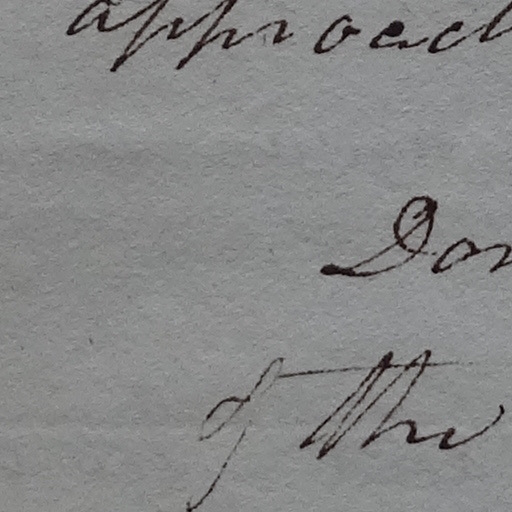 approach
Don
of the